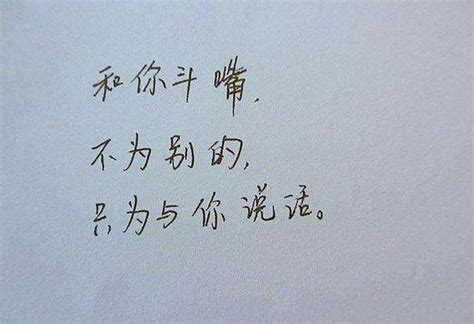 和你斗嘴，
不为别的，
只为与你说话。